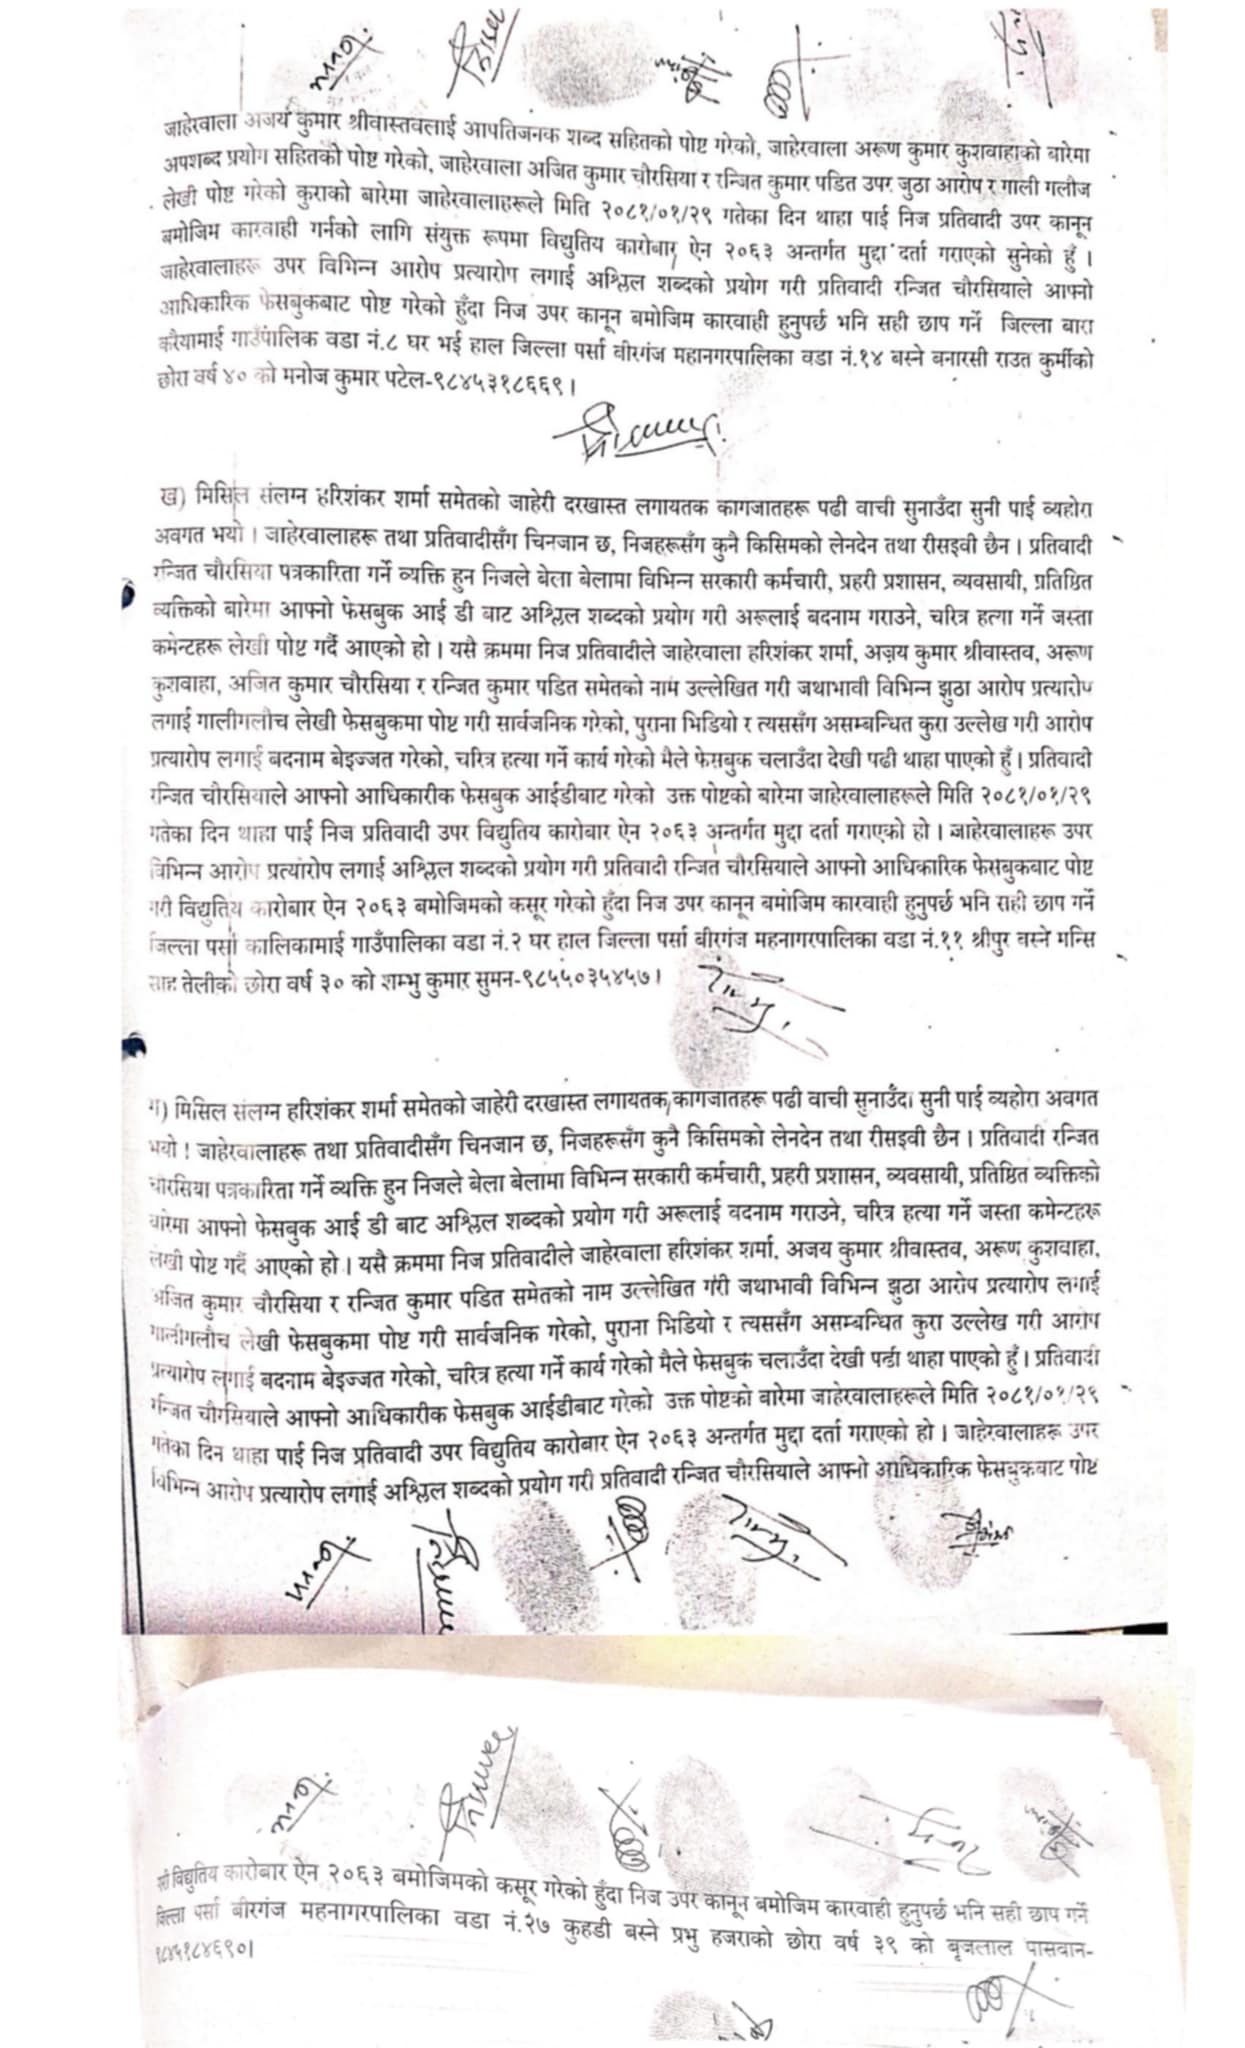 जाहेरवाला अजय कुमार श्रीवास्तवलाई आपतिजनक शब्द सहितको पोष्ट गरेको, जाहेरवाला अरूण कुमार कुशवाहाको बारेमा
अपशब्द प्रयोग सहितको पोष्ट गरेको, जाहेरवाला अजित कुमार चौरसिया र रन्जित कुमार पडित उपर जुठा आरोप र गाली गलौज
लेखी पोष्ट गरेको कुराको बारेमा जाहेरवालाहरूले मिति २०८१/०१/२९ गतेका दिन थाहा पाई निज प्रतिवादी उपर कानून
बमोजिम कारवाही गर्नको लागि संयुक्त रूपमा विद्युतिय कारोबार ऐन २०६३ अन्तर्गत मुद्दा दर्ता गराएको सुनेको हुँ ।
जाहेरवालाहरू उपर विभिन्न आरोप प्रत्यारोप लगाई अश्लिल शब्दको प्रयोग गरी प्रतिवादी रन्जित चौरसियाले आफ्नो
आधिकारिक फेसबुकबाट पोष्ट गरेको हुँदा निज उपर कानून बमोजिम कारवाही हुनुपर्छ भनि सही छाप गर्ने जिल्ला बारा
करैयामाई गाउँपालिक वडा नं.८ घर भई हाल जिल्ला पर्सा वीरगंज महानगरपालिका वडा नं.१४ बस्ने बनारसी राउत कुर्मीको
छोरा वर्ष ४० को मनोज कुमार पटेल-९८४५३१८६६९।
ख) मिसिल संलग्न हरिशंकर शर्मा समेतको जाहेरी दरखास्त लगायतक कागजातहरू पढी वाची सुनाउँदा सुनी पाई व्यहोरा
अवगत भयो । जाहेरवालाहरू तथा प्रतिवादीसँग चिनजान छ, निजहरूसँग कुनै किसिमको लेनदेन तथा रीसइवी छैन । प्रतिवादी
रन्जित चौरसिया पत्रकारिता गर्ने व्यक्ति हुन निजले बेला बेलामा विभिन्न सरकारी कर्मचारी, प्रहरी प्रशासन, व्यवसायी, प्रतिष्ठित
व्यक्तिको बारेमा आफ्नो फेसबुक आई डी बाट अश्लिल शब्दको प्रयोग गरी अरूलाई बदनाम गराउने, चरित्र हत्या गर्ने जस्ता
कमेन्टहरू लेखी पोष्ट गर्दै आएको हो । यसै क्रममा निज प्रतिवादीले जाहेरवाला हरिशंकर शर्मा, अजय कुमार श्रीवास्तव, अरूण
कुशवाहा, अजित कुमार चौरसिया र रन्जित कुमार पडित समेतको नाम उल्लेखित गरी जथाभावी विभिन्न झुठा आरोप प्रत्यारोप
लगाई गालीगलौच लेखी फेसबुकमा पोष्ट गरी सार्वजनिक गरेको, पुराना भिडियो र त्यससँग असम्बन्धित कुरा उल्लेख गरी आरोप
प्रत्यारोप लगाई बदनाम बेइज्जत गरेको, चरित्र हत्या गर्ने कार्य गरेको मैले फेसबुक चलाउँदा देखी पढी थाहा पाएको हुँ । प्रतिवादी
रन्जित चौरसियाले आफ्नो आधिकारीक फेसबुक आईडीबाट गरेको उक्त पोष्टको बारेमा जाहेरवालाहरूले मिति २०८१/०१/२९
गतेका दिन थाहा पाई निज प्रतिवादी उपर विद्युतिय कारोबार ऐन २०६३ अन्तर्गत मुद्दा दर्ता गराएको हो । जाहेरवालाहरू उपर
विभिन्न आरोप प्रत्यारोप लगाई अश्लिल शब्दको प्रयोग गरी प्रतिवादी रन्जित चौरसियाले आफ्नो आधिकारिक फेसबुकबाट पोष्ट
गरी विद्युतिय कारोबार ऐन २०६३ बमोजिमको कसूर गरेको हुँदा निज उपर कानून बमोजिम कारवाही हुनुपर्छ भनि सही छाप गर्ने
जिल्ला पर्सा कालिकामाई गाउँपालिका वडा नं.२ घर हाल जिल्ला पर्सा वीरगंज महनागरपालिका वडा नं.११ श्रीपुर बस्ने मन्सि
साह तेलीको छोरा वर्ष ३० को शम्भु कुमार सुमन-९८५५०३५४५७।
ग) मिसिल संलग्न हरिशंकर शर्मा समेतको जाहेरी दरखास्त लगायतक कागजातहरू पढी वाची सुनाउँदा सुनी पाई व्यहोरा अवगत
भयो । जाहेरवालाहरू तथा प्रतिवादीसँग चिनजान छ, निजहरूसँग कुनै किसिमको लेनदेन तथा रीसइवी छैन । प्रतिवादी रन्जित
चौरसिया पत्रकारिता गर्ने व्यक्ति हुन निजले बेला बेलामा विभिन्न सरकारी कर्मचारी, प्रहरी प्रशासन, व्यवसायी, प्रतिष्ठित व्यक्तिको
बारेमा आफ्नो फेसबुक आई डी बाट अश्लिल शब्दको प्रयोग गरी अरूलाई बदनाम गराउने, चरित्र हत्या गर्ने जस्ता कमेन्टहरू
लेखी पोष्ट गर्दै आएको हो । यसै क्रममा निज प्रतिवादीले जाहेरवाला हरिशंकर शर्मा, अजय कुमार श्रीवास्तव, अरूण कुशवाहा,
अजित कुमार चौरसिया र रन्जित कुमार पडित समेतको नाम उल्लेखित गरी जथाभावी विभिन्न झुठा आरोप प्रत्यारोप लगाई
गालीगलौच लेखी फेसबुकमा पोष्ट गरी सार्वजनिक गरेको, पुराना भिडियो र त्यससँग असम्बन्धित कुरा उल्लेख गरी आरोप
प्रत्यारोप लगाई बदनाम बेइज्जत गरेको, चरित्र हत्या गर्ने कार्य गरेको मैले फेसबुक चलाउँदा देखी पढी थाहा पाएको हुँ । प्रतिवादी
रन्जित चौरसियाले आफ्नो आधिकारीक फेसबुक आईडीबाट गरेको उक्त पोष्टको बारेमा जाहेरवालाहरूले मिति २०८१/०१/२९
गतेका दिन थाहा पाई निज प्रतिवादी उपर विद्युतिय कारोबार ऐन २०६३ अन्तर्गत मुद्दा दर्ता गराएको हो । जाहेरवालाहरू उपर
विभिन्न आरोप प्रत्यारोप लगाई अश्लिल शब्दको प्रयोग गरी प्रतिवादी रन्जित चौरसियाले आफ्नो आधिकारिक फेसबुकबाट पोष्ट
गरी विद्युतिय कारोबार ऐन २०६३ बमोजिमको कसूर गरेको हुँदा निज उपर कानून बमोजिम कारवाही हुनुपर्छ भनि सही छाप गर्ने
जिल्ला पर्सा बीरगंज महनागरपालिका वडा नं.२७ कुहडी बस्ने प्रभु हजराको छोरा वर्ष ३९ को बृजलाल पासवान-
९८४५१८४६९०।